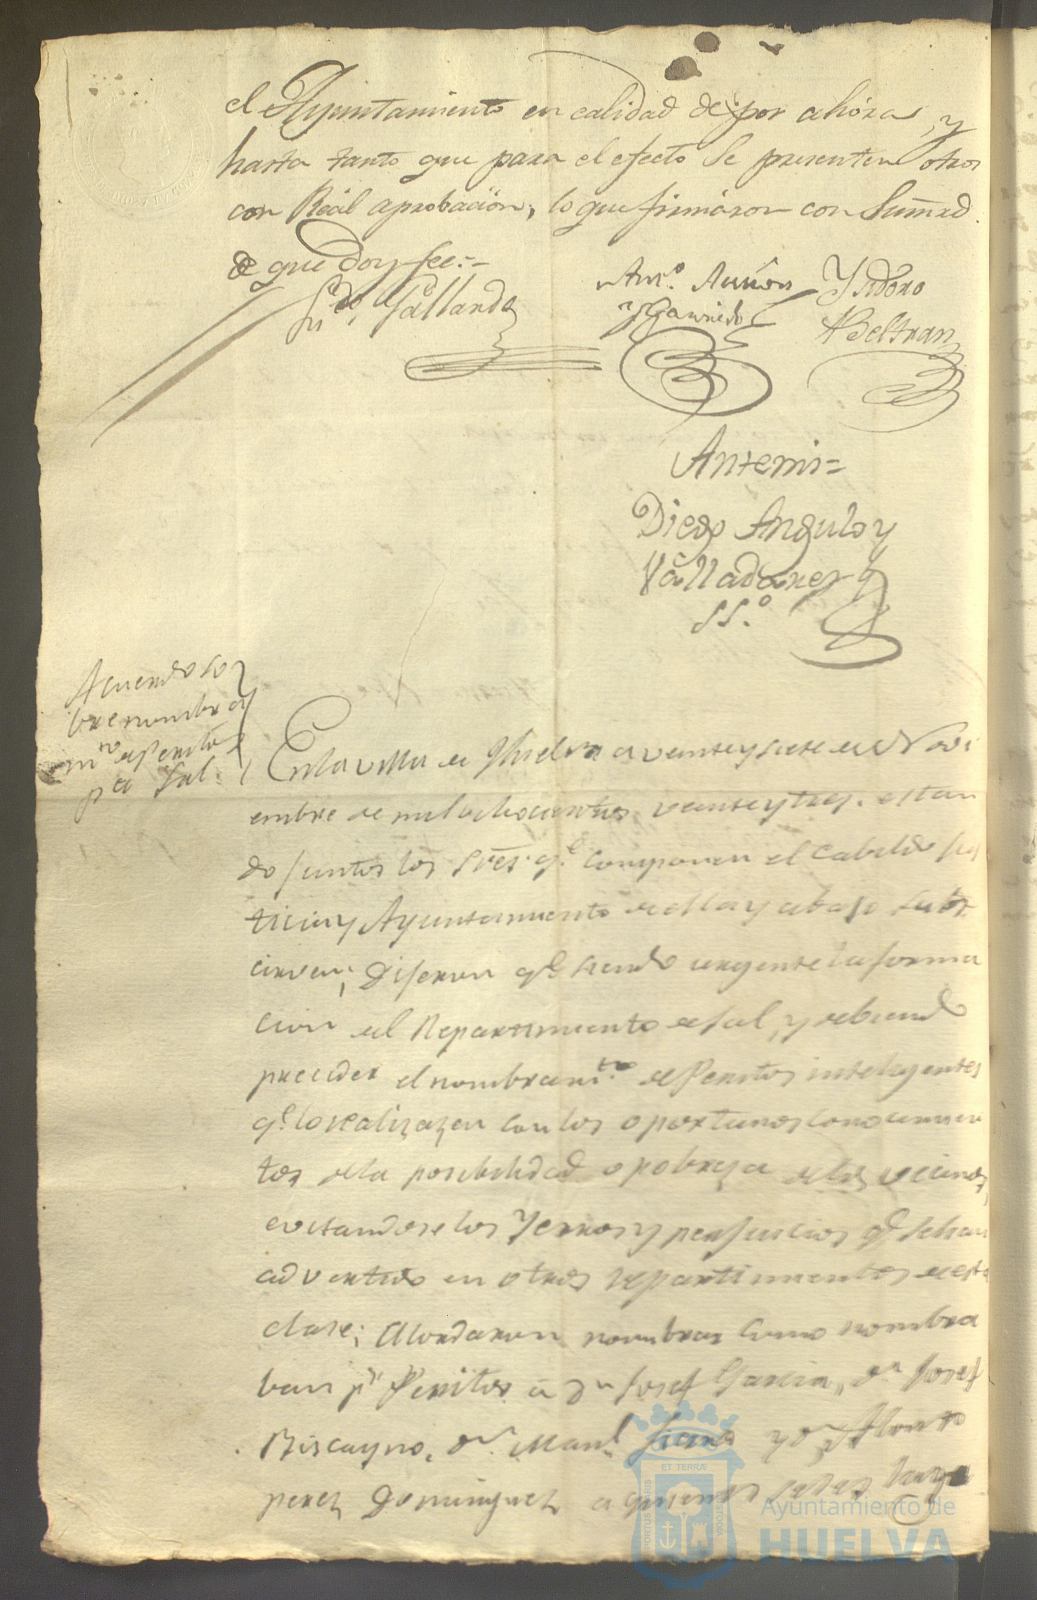 el Ayuntamiento en calidad de por ahóra, y
hasta tanto que para el efecto se presenten otros
con Reál aprobación, lo que firmáron con Sumrd.
de que doy fee:-
Gallardo
Anto. Ysidoro
Beltran
Antemi=
Diego Angulo y
Valladares
SSº.
Acuerdo so
bre nombra
mto. de Peritos
pa. la Sal.
En la villa de Huelva a veinte y siete de Novi
embre de mil ochocientos veinte y tres. estan
do juntos los Sres. qe. componen el Cabildo Jus
ticia y Ayuntamiento de ella y abajo subs
criven; Dijeron qe. siendo urgente la forma
cion del Repartimiento de Sal, y debiendo
preceder el nombramto. de Peritos inteligentes
qe. lo realizazen con los oportunos conocimien
tos de la posibilidad o pobreza de los vecinos,
evitandose los Yerros y perjuicios qe. se han
advertido en otros repartimientos de esta
clase; Acordaron nombrar como nombra
ban pr. Peritos a Dn. Josef Garcia, Dn. Josef
Biscayno, Dn. Manl. y Dn. Alonso
perez Dominguez a quienes se les haga
PORTUS MARIS ET TERRÆ CUSTODIA
Ayuntamiento de
HUELVA